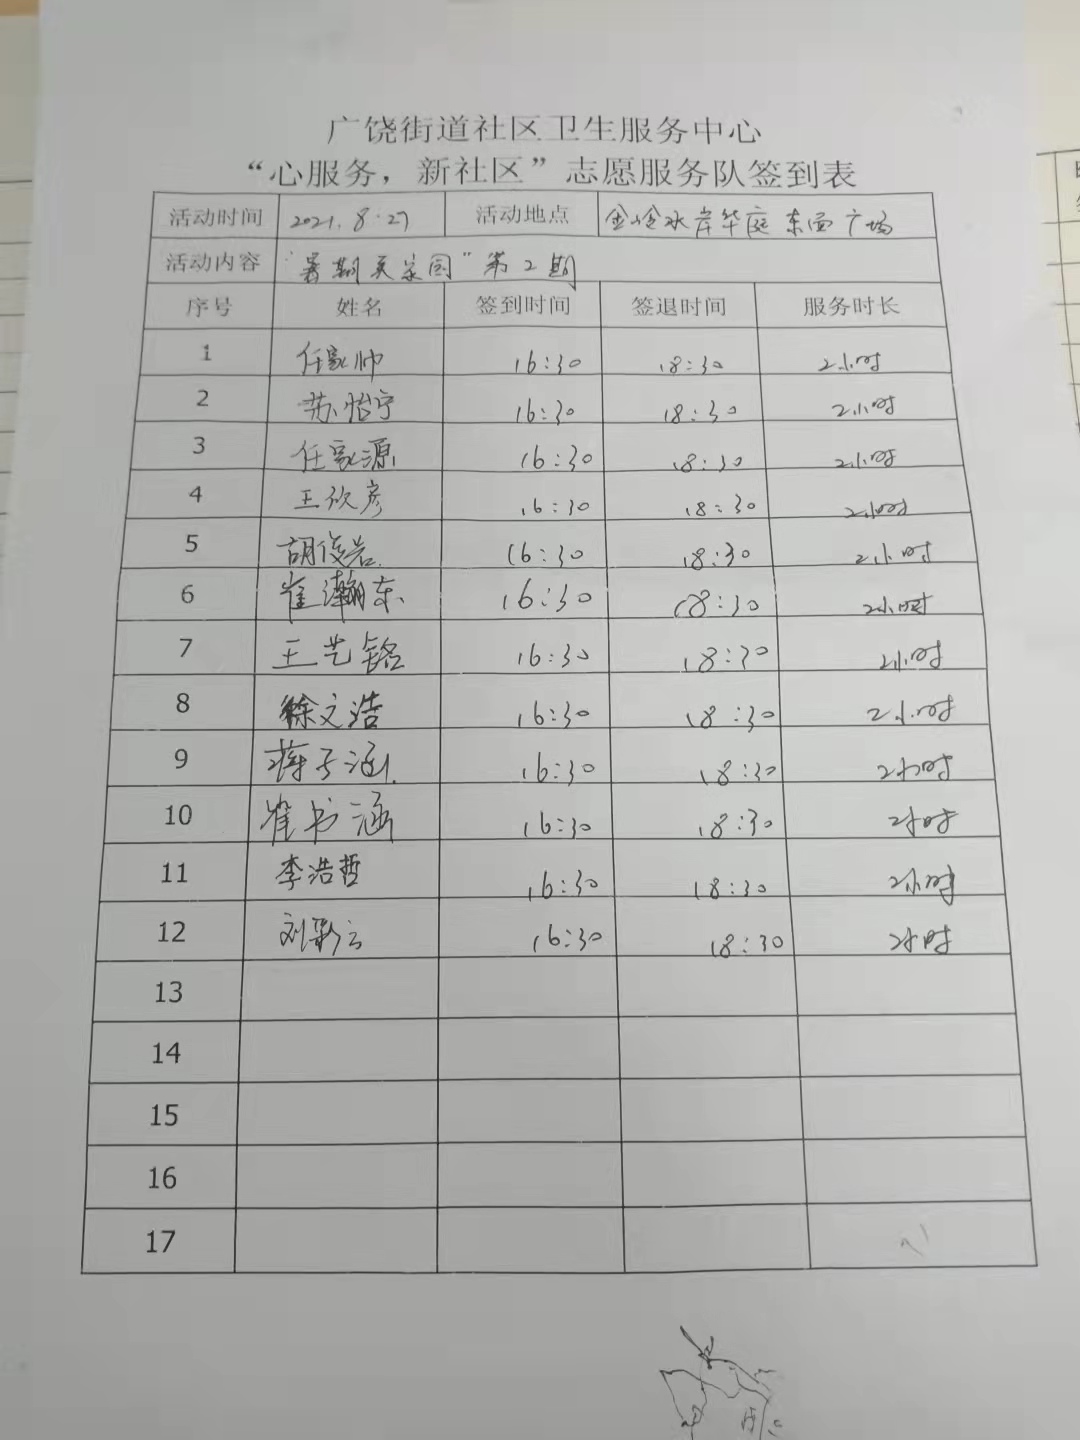 广饶街道社区卫生服务中心
“心服务，新社区”志愿服务队签到表
活动时间 2021.8.27 活动地点 水岸华庭东面广场
活动内容 “暑期 家园”第2期
序号 姓名 签到时间 签退时间 服务时长
1 任家帅 16:30 18:30 2小时
2 苏怡宁 16:30 18:30 2小时
3 任家源 16:30 18:30 2小时
4 王欣彦 16:30 18:30 2小时
5 胡俊岩 16:30 18:30 2小时
6 崔瀚东 16:30 18:30 2小时
7 王艺铭 16:30 18:30 2小时
8 徐文浩 16:30 18:30 2小时
9 蒋子涵 16:30 18:30 2小时
10 崔书涵 16:30 18:30 2小时
11 李浩哲 16:30 18:30 2小时
12 刘彩云 16:30 18:30 2小时
13
14
15
16
17